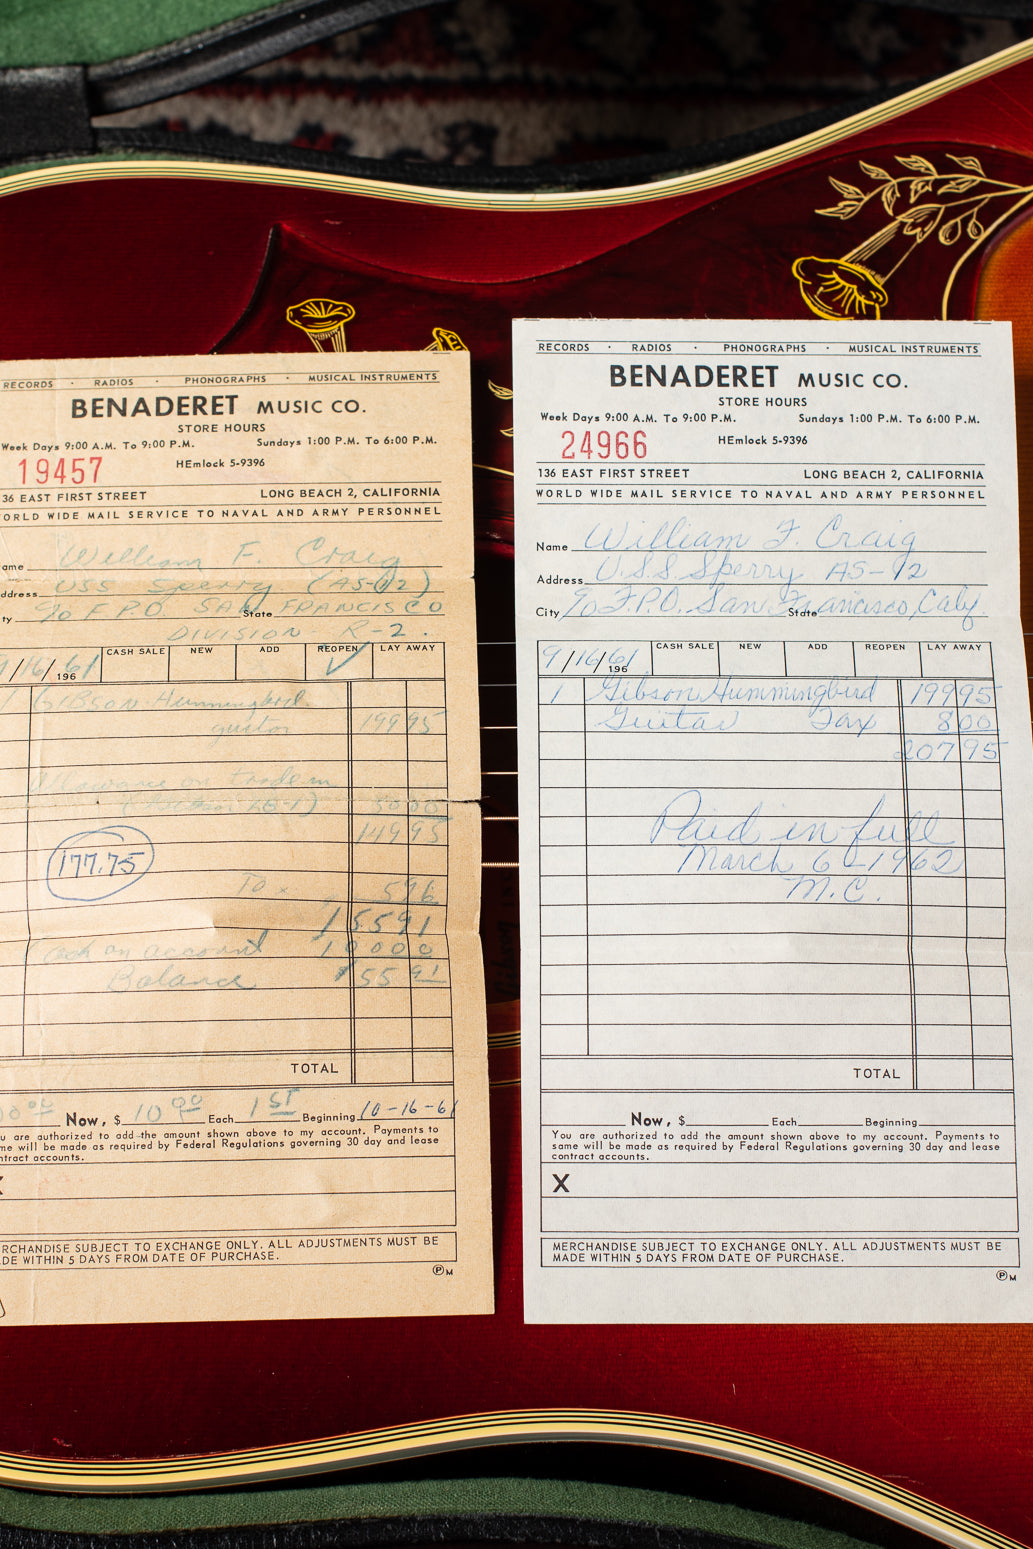 RECORDS · RADIOS · PHONOGRAPHS · MUSICAL INSTRUMENTS
BENADERET MUSIC CO.
STORE HOURS
Week Days 9:00 A.M. To 9:00 P.M. Sundays 1:00 P.M. To 6:00 P.M.
19457 HEmlock 5-9396
36 EAST FIRST STREET LONG BEACH 2, CALIFORNIA
ORLD WIDE MAIL SERVICE TO NAVAL AND ARMY PERSONNEL
ame William F. Craig
ddress USS Sperry (AS-12)
ty c/o F.P.O. SAN State FRANCISCO
DIVISION R-2.
9/16/61 196 CASH SALE NEW ADD REOPEN ✓ LAY AWAY
1 GIBSON Hummingbird
guitar 199 95
Allowance on trade in
LG-1) 50 00
149 95
177.75
Tax 5 96
155 91
Cash on account 100 00
Balance $55 91
TOTAL
00 00 Now, $ 10 00 Each 1ST Beginning 10-16-61
ou are authorized to add the amount shown above to my account. Payments to
me will be made as required by Federal Regulations governing 30 day and lease
ntract accounts.
X
RCHANDISE SUBJECT TO EXCHANGE ONLY. ALL ADJUSTMENTS MUST BE
DE WITHIN 5 DAYS FROM DATE OF PURCHASE.
Ⓟ M
RECORDS · RADIOS · PHONOGRAPHS · MUSICAL INSTRUMENTS
BENADERET MUSIC CO.
STORE HOURS
Week Days 9:00 A.M. To 9:00 P.M. Sundays 1:00 P.M. To 6:00 P.M.
24966 HEmlock 5-9396
136 EAST FIRST STREET LONG BEACH 2, CALIFORNIA
WORLD WIDE MAIL SERVICE TO NAVAL AND ARMY PERSONNEL
Name William F. Craig
Address U.S.S. Sperry AS-12
City c/o F.P.O. San State Francisco, Calif.
9/16/61 196 CASH SALE NEW ADD REOPEN LAY AWAY
1 Gibson Hummingbird 199 95
Guitar Tax 8 00
207 95
Paid in full
March 6-1962
M.C.
TOTAL
Now, $ Each Beginning
You are authorized to add the amount shown above to my account. Payments to
same will be made as required by Federal Regulations governing 30 day and lease
contract accounts.
X
MERCHANDISE SUBJECT TO EXCHANGE ONLY. ALL ADJUSTMENTS MUST BE
MADE WITHIN 5 DAYS FROM DATE OF PURCHASE.
Ⓟ M